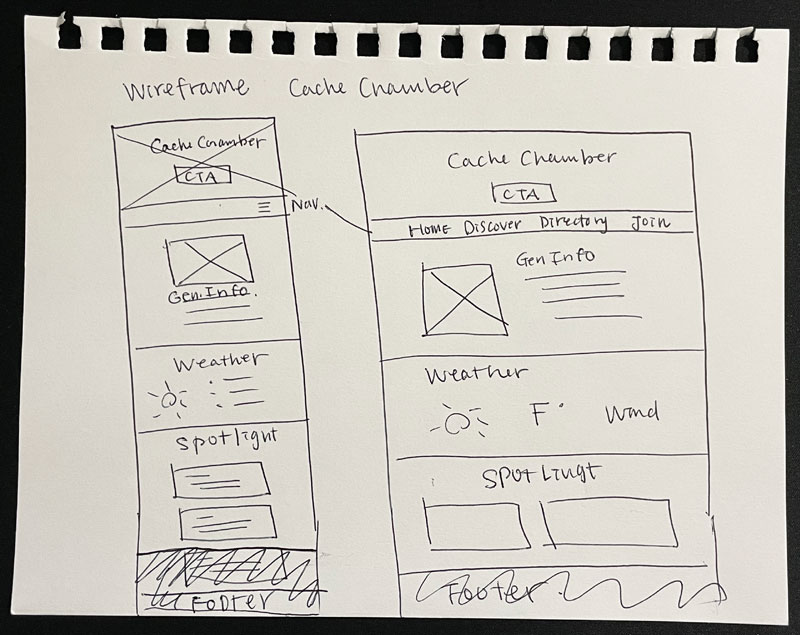 Wireframe Cache Chamber
Cache Chamber
CTA
Nav.
Gen. Info.
Weather
Spotlight
FOOTER
Cache Chamber
CTA
Home Discover Directory Join
Gen Info
Weather
F° Wind
SPOTLINGT
Footer